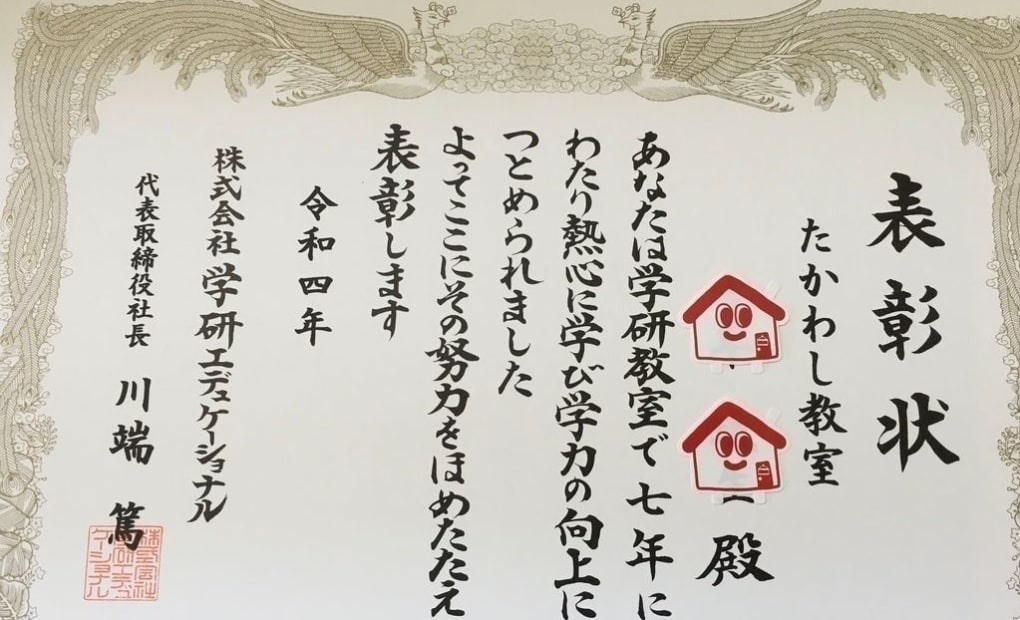 表彰状
たかわし教室
殿
あなたは学研教室で七年に
わたり熱心に学び学力の向上に
つとめられました
よってここにその努力をほめたたえ
表彰します
令和四年
株式会社学研エデュケーショナル
代表取締役社長 川端 篤
株式会社
学研エデュ
ケーショナル